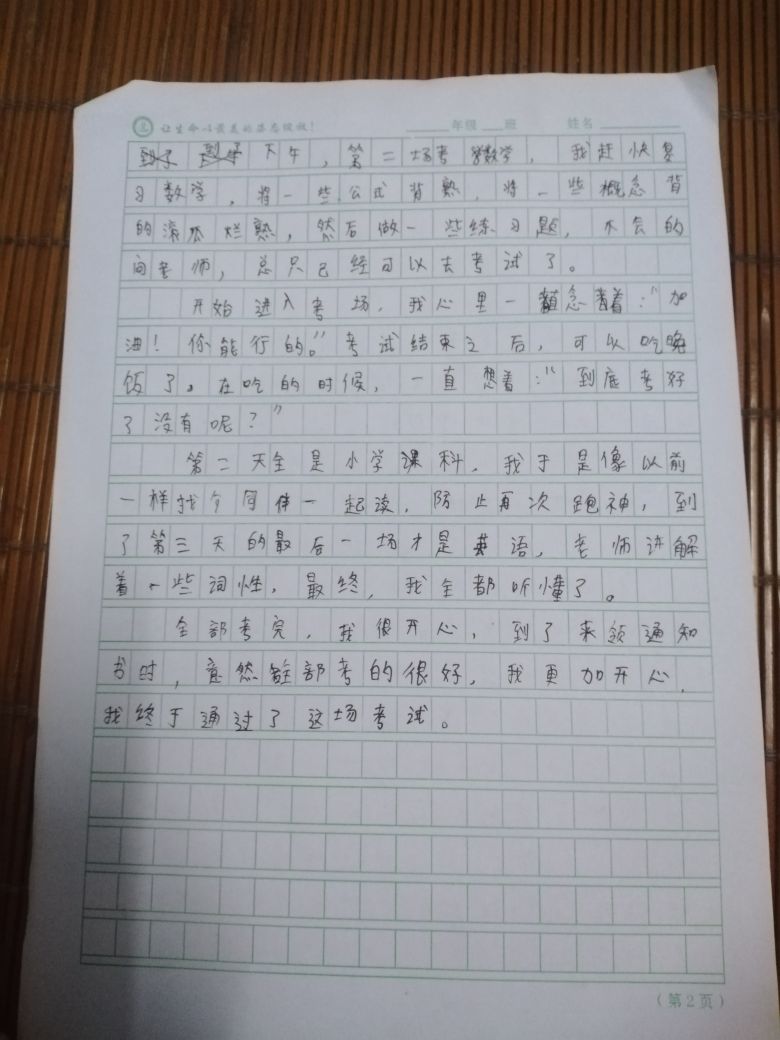 让生命以最美的姿态绽放！ 年级 班 姓名
下午，第二场考数学，我赶快复
习数学，将一些公式背熟，将一些概念背
的滚瓜烂熟，然后做一些练习题，不会的
问老师，总只已经可以去考试了。
开始进入考场，我心里一直念着：“加
油！你能行的。”考试结束之后，可以吃晚
饭了。在吃的时候，一直想着：“到底考好
了没有呢？”
第二天全是小学课科，我于是像以前
一样找个同伴一起读，防止再次跑神，到
了第三天的最后一场才是英语，老师讲解
着一些词性，最终，我全都听懂了。
全部考完，我很开心，到了来领通知
书时，竟然全部考的很好，我更加开心，
我终于通过了这场考试。
（第2页）